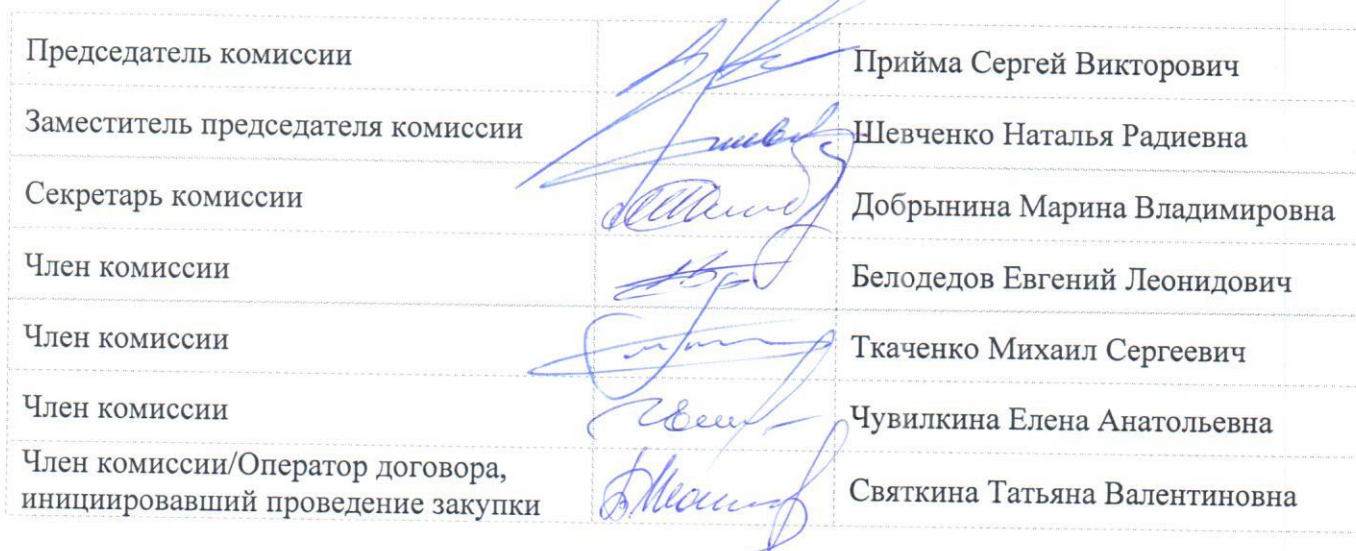 Председатель комиссии Прийма Сергей Викторович
Заместитель председателя комиссии Шевченко Наталья Радиевна
Секретарь комиссии Добрынина Марина Владимировна
Член комиссии Белодедов Евгений Леонидович
Член комиссии Ткаченко Михаил Сергеевич
Член комиссии Чувилкина Елена Анатольевна
Член комиссии/Оператор договора,
инициировавший проведение закупки Святкина Татьяна Валентиновна